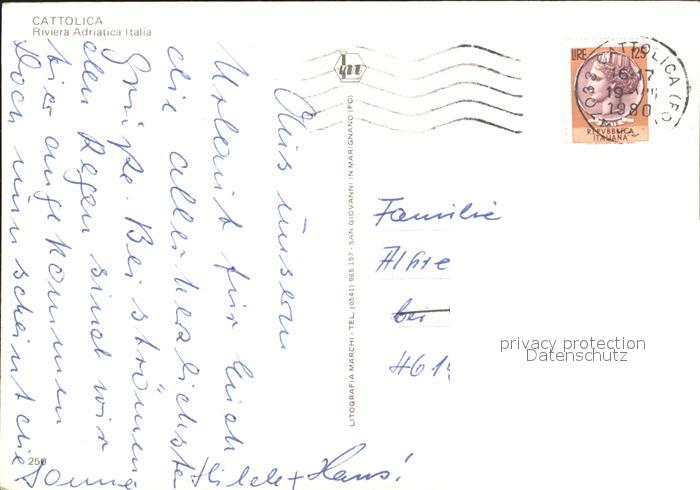 CATTOLICA
Riviera Adriatica Italia
Aus unserem
Urlaub für Euch
die allerherzlichsten
Grüße. Bei strömen
den Regen sind wir
hier angekommen
Doch nun scheint die
Sonne
Hilde + Hans!
250
LITOGRAFIA MARCHI - TEL. (0541) 965 157 - SAN GIOVANNI IN MARIGNANO (FO)
LIRE 125
REPVBBLICA
ITALIANA
CATTOLICA (FO)
16-17
19
1980
Familie
Alfre
bei
461
privacy protection
Datenschutz